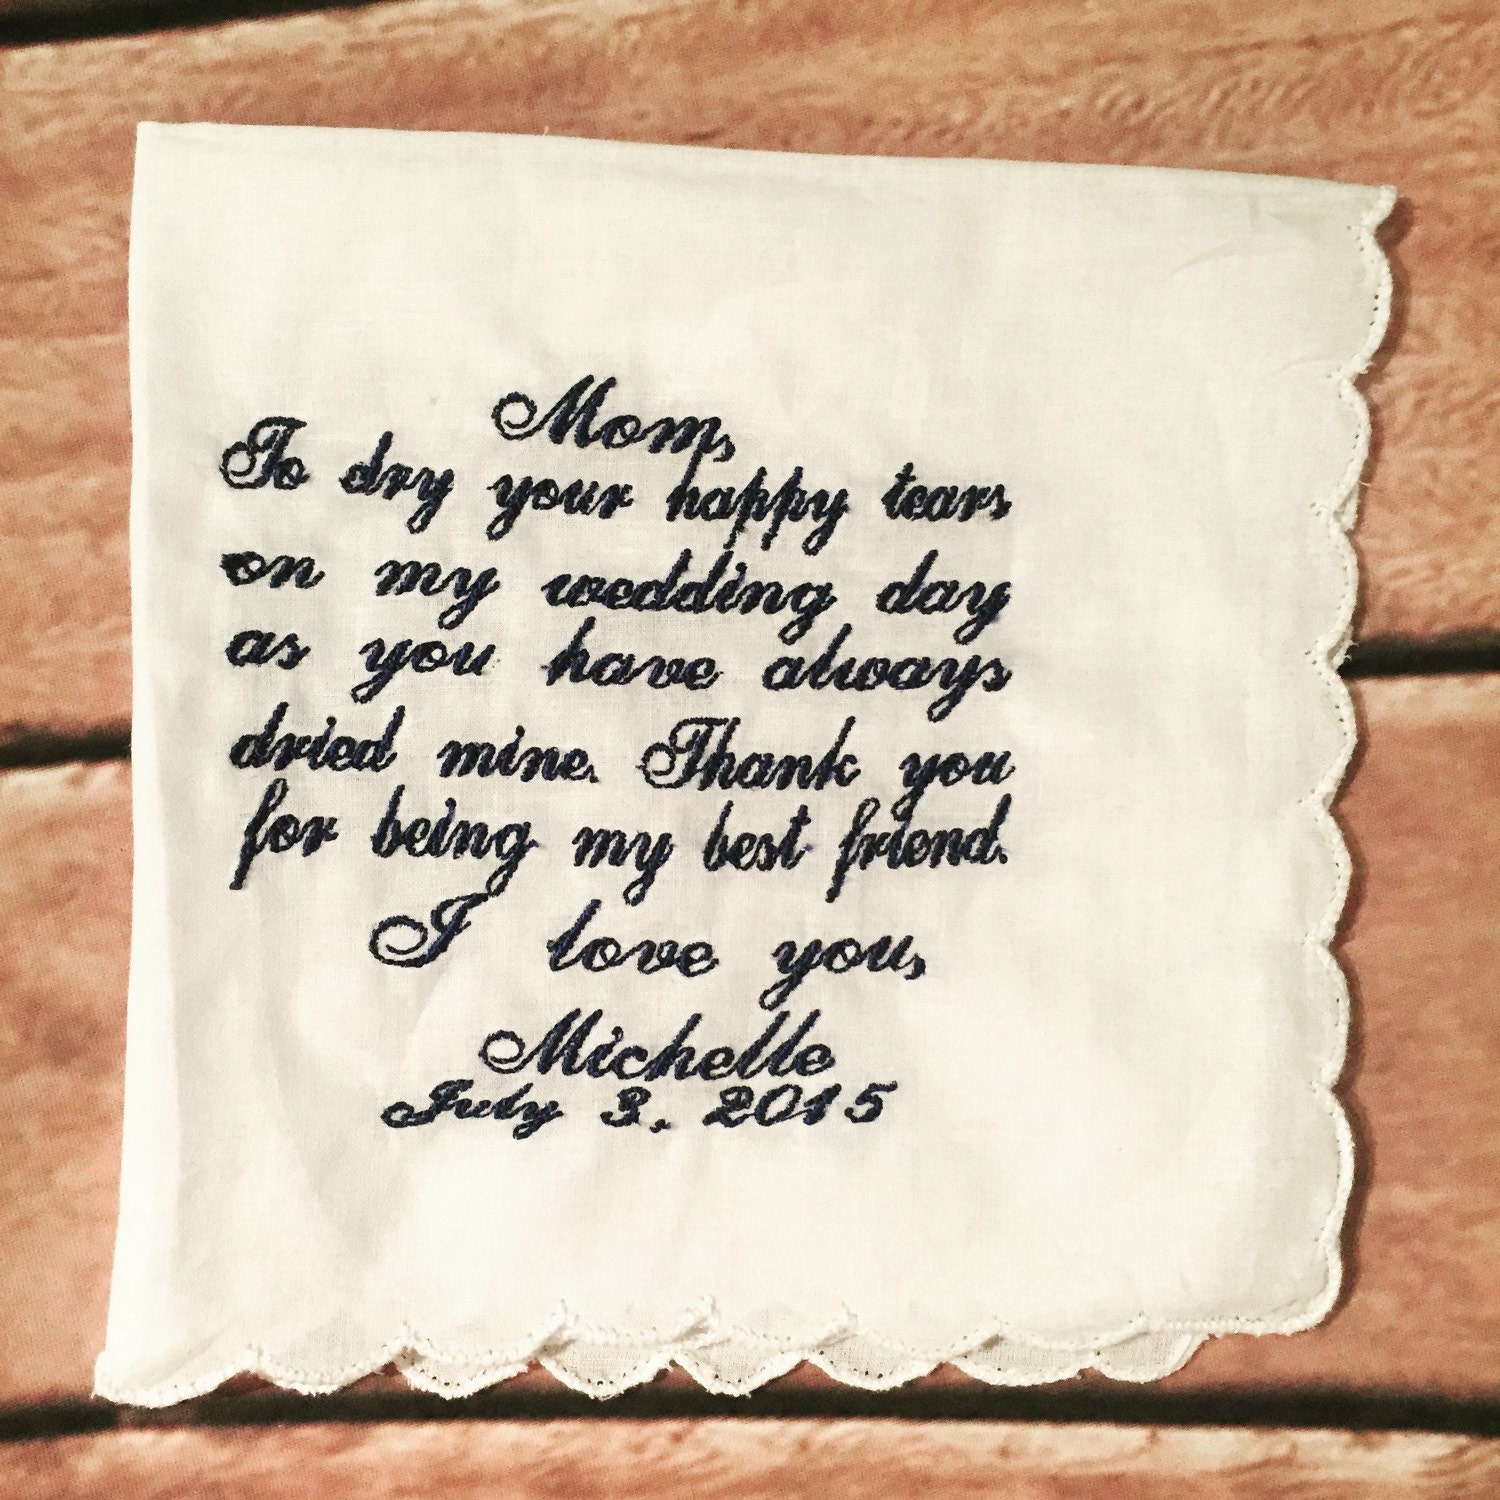 Mom,
To dry your happy tears
on my wedding day
as you have always
dried mine. Thank you
for being my best friend.
I love you,
Michelle
July 3, 2015